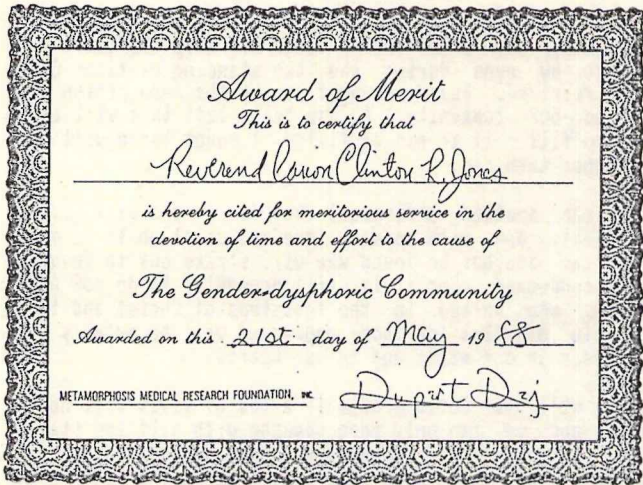 Award of Merit
This is to certify that
Reverend Canon Clinton R. Jones
is hereby cited for meritorious service in the
devotion of time and effort to the cause of
The Gender-dysphoric Community
Awarded on this 21st day of May 1988
METAMORPHOSIS MEDICAL RESEARCH FOUNDATION, INC.